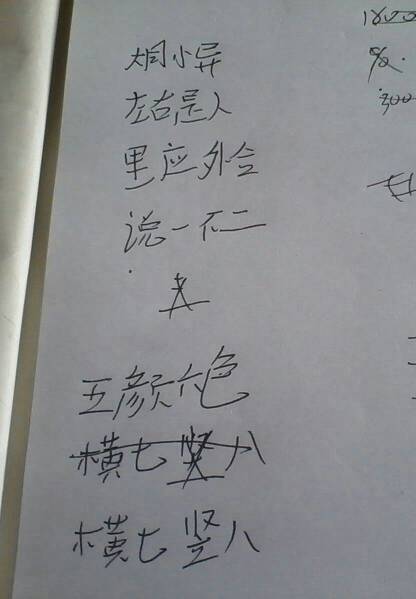 大同小异
左右是人
里应外合
说一不二
五颜六色
横七竖八
横七竖八
1800
300